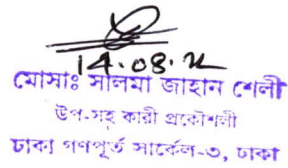 14.08.22
মোসাঃ সালমা জাহান শেলী
উপ-সহকারী প্রকৌশলী
ঢাকা গণপূর্ত সার্কেল-৩, ঢাকা